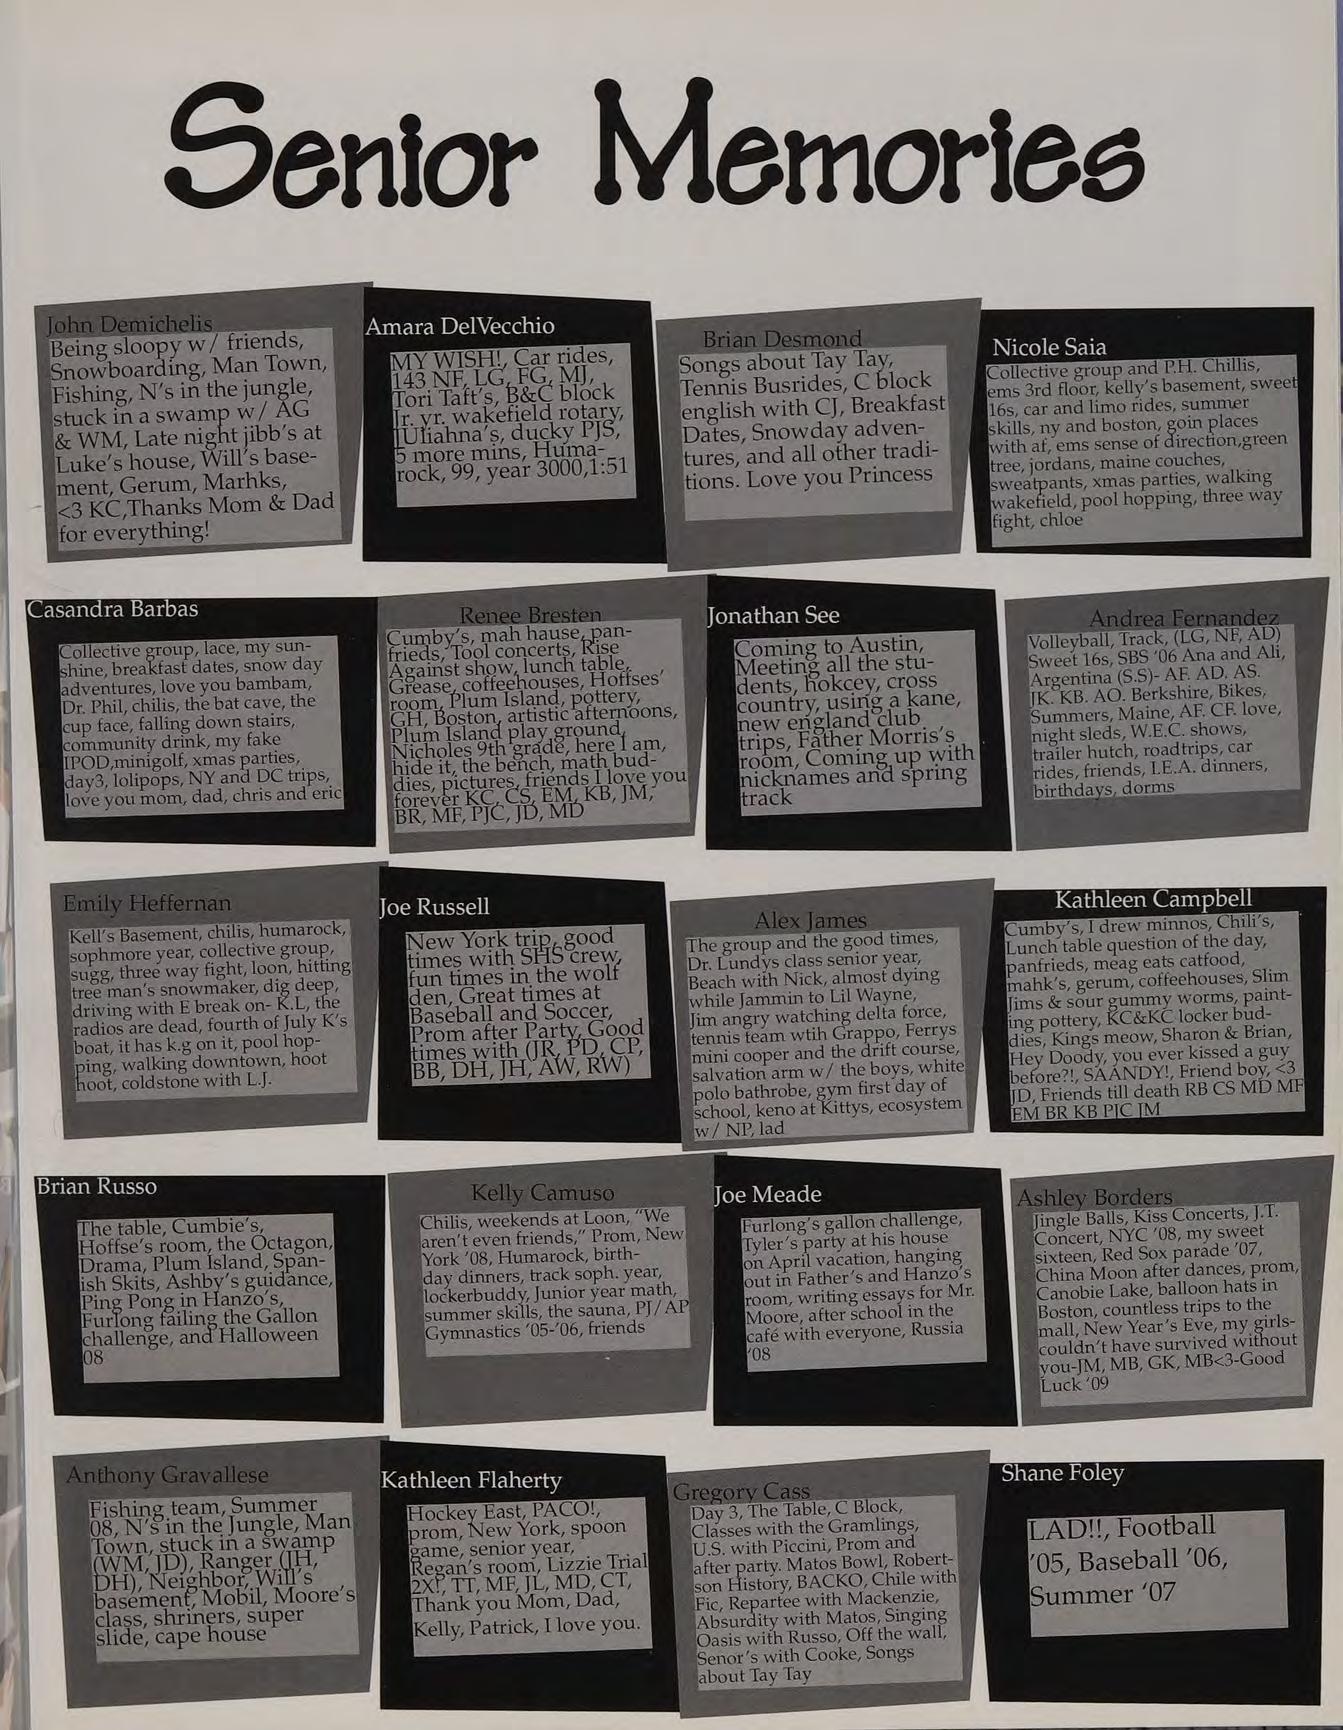 Senior Memories
John Demichelis
Being sloopy w/ friends,
Snowboarding, Man Town,
Fishing, N's in the jungle,
stuck in a swamp w/ AG
& WM, Late night jibb's at
Luke's house, Will's base-
ment, Gerum, Marhks,
<3 KC,Thanks Mom & Dad
for everything!
Amara DelVecchio
MY WISH!, Car rides,
143 NF, LG, FG, MJ,
Tori Taft's, B&C block
Jr. yr. wakefield rotary,
JUliahna's, ducky PJS,
5 more mins, Huma-
rock, 99, year 3000,1:51
Brian Desmond
Songs about Tay Tay,
Tennis Busrides, C block
english with CJ, Breakfast
Dates, Snowday adven-
tures, and all other tradi-
tions. Love you Princess
Nicole Saia
Collective group and P.H. Chillis,
ems 3rd floor, kelly's basement, sweet
16s, car and limo rides, summer
skills, ny and boston, goin places
with af, ems sense of direction,green
tree, jordans, maine couches,
sweatpants, xmas parties, walking
wakefield, pool hopping, three way
fight, chloe
Casandra Barbas
Collective group, lace, my sun-
shine, breakfast dates, snow day
adventures, love you bambam,
Dr. Phil, chilis, the bat cave, the
cup face, falling down stairs,
community drink, my fake
IPOD,minigolf, xmas parties,
day3, lolipops, NY and DC trips,
love you mom, dad, chris and eric
Renee Bresten
Cumby's, mah hause, pan-
frieds, Tool concerts, Rise
Against show, lunch table,
Grease, coffeehouses, Hoffses'
room, Plum Island, pottery,
GH, Boston, artistic afternoons,
Plum Island play ground,
Nicholes 9th grade, here I am,
hide it, the bench, math bud-
dies, pictures, friends I love you
forever KC, CS, EM, KB, JM,
BR, MF, PJC, JD, MD
Jonathan See
Coming to Austin,
Meeting all the stu-
dents, hokcey, cross
country, using a kane,
new england club
trips, Father Morris's
room, Coming up with
nicknames and spring
track
Andrea Fernandez
Volleyball, Track, (LG, NF, AD)
Sweet 16s, SBS '06 Ana and Ali,
Argentina (S.S)- AF. AD. AS.
JK. KB. AO. Berkshire, Bikes,
Summers, Maine, AF. CF. love,
night sleds, W.E.C. shows,
trailer hutch, roadtrips, car
rides, friends, I.E.A. dinners,
birthdays, dorms
Emily Heffernan
Kell's Basement, chilis, humarock,
sophmore year, collective group,
sugg, three way fight, loon, hitting
tree man's snowmaker, dig deep,
driving with E break on- K.L, the
radios are dead, fourth of July K's
boat, it has k.g on it, pool hop-
ping, walking downtown, hoot
hoot, coldstone with L.J.
Joe Russell
New York trip, good
times with SHS crew,
fun times in the wolf
den, Great times at
Baseball and Soccer,
Prom after Party, Good
times with (JR, PD, CP,
BB, DH, JH, AW, RW)
Alex James
The group and the good times,
Dr. Lundys class senior year,
Beach with Nick, almost dying
while Jammin to Lil Wayne,
Jim angry watching delta force,
tennis team wtih Grappo, Ferrys
mini cooper and the drift course,
salvation arm w/ the boys, white
polo bathrobe, gym first day of
school, keno at Kittys, ecosystem
w/ NP, lad
Kathleen Campbell
Cumby's, I drew minnos, Chili's,
Lunch table question of the day,
panfrieds, meag eats catfood,
mahk's, gerum, coffeehouses, Slim
Jims & sour gummy worms, paint-
ing pottery, KC&KC locker bud-
dies, Kings meow, Sharon & Brian,
Hey Doody, you ever kissed a guy
before?!, SAANDY!, Friend boy, <3
JD, Friends till death RB CS MD MF
EM BR KB PJC JM
Brian Russo
The table, Cumbie's,
Hoffse's room, the Octagon,
Drama, Plum Island, Span-
ish Skits, Ashby's guidance,
Ping Pong in Hanzo's,
Furlong failing the Gallon
challenge, and Halloween
08
Kelly Camuso
Chilis, weekends at Loon, "We
aren't even friends," Prom, New
York '08, Humarock, birth-
day dinners, track soph. year,
lockerbuddy, Junior year math,
summer skills, the sauna, PJ/AP
Gymnastics '05-'06, friends
Joe Meade
Furlong's gallon challenge,
Tyler's party at his house
on April vacation, hanging
out in Father's and Hanzo's
room, writing essays for Mr.
Moore, after school in the
café with everyone, Russia
'08
Ashley Borders
Jingle Balls, Kiss Concerts, J.T.
Concert, NYC '08, my sweet
sixteen, Red Sox parade '07,
China Moon after dances, prom,
Canobie Lake, balloon hats in
Boston, countless trips to the
mall, New Year's Eve, my girls-
couldn't have survived without
you-JM, MB, GK, MB<3-Good
Luck '09
Anthony Gravallese
Fishing team, Summer
08, N's in the Jungle, Man
Town, stuck in a swamp
(WM, JD), Ranger (JH,
DH), Neighbor, Will's
basement, Mobil, Moore's
class, shriners, super
slide, cape house
Kathleen Flaherty
Hockey East, PACO!,
prom, New York, spoon
game, senior year,
Regan's room, Lizzie Trial
2X!, TT, MF, JL, MD, CT,
Thank you Mom, Dad,
Kelly, Patrick, I love you.
Gregory Cass
Day 3, The Table, C Block,
Classes with the Gramlings,
U.S. with Piccini, Prom and
after party. Matos Bowl, Robert-
son History, BACKO, Chile with
Fic, Repartee with Mackenzie,
Absurdity with Matos, Singing
Oasis with Russo, Off the wall,
Senor's with Cooke, Songs
about Tay Tay
Shane Foley
LAD!!, Football
'05, Baseball '06,
Summer '07